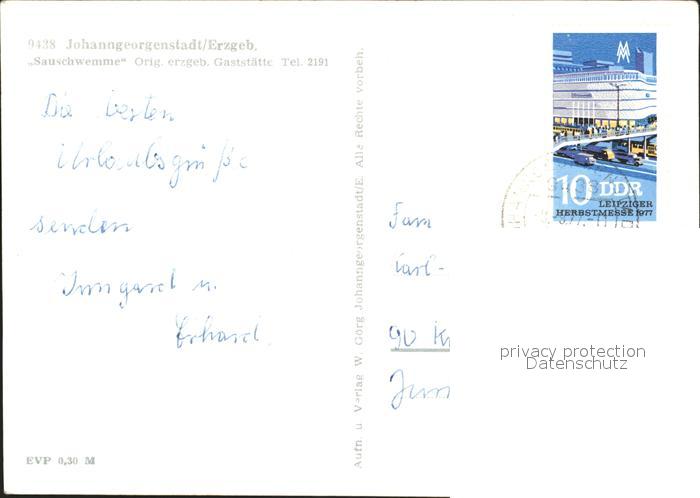 9438 Johanngeorgenstadt/Erzgeb.
„Sauschwemme“ Orig. erzgeb. Gaststätte Tel. 2191
Die besten
Urlaubsgrüße
senden
Irmgard u.
Erhard.
EVP 0,30 M
Aufn. u. Verlag W. Görg Johanngeorgenstadt/E. Alle Rechte vorbeh.
10 DDR
LEIPZIGER
HERBSTMESSE 1977
9438
Fam
Karl-
90 K
privacy protection
Datenschutz